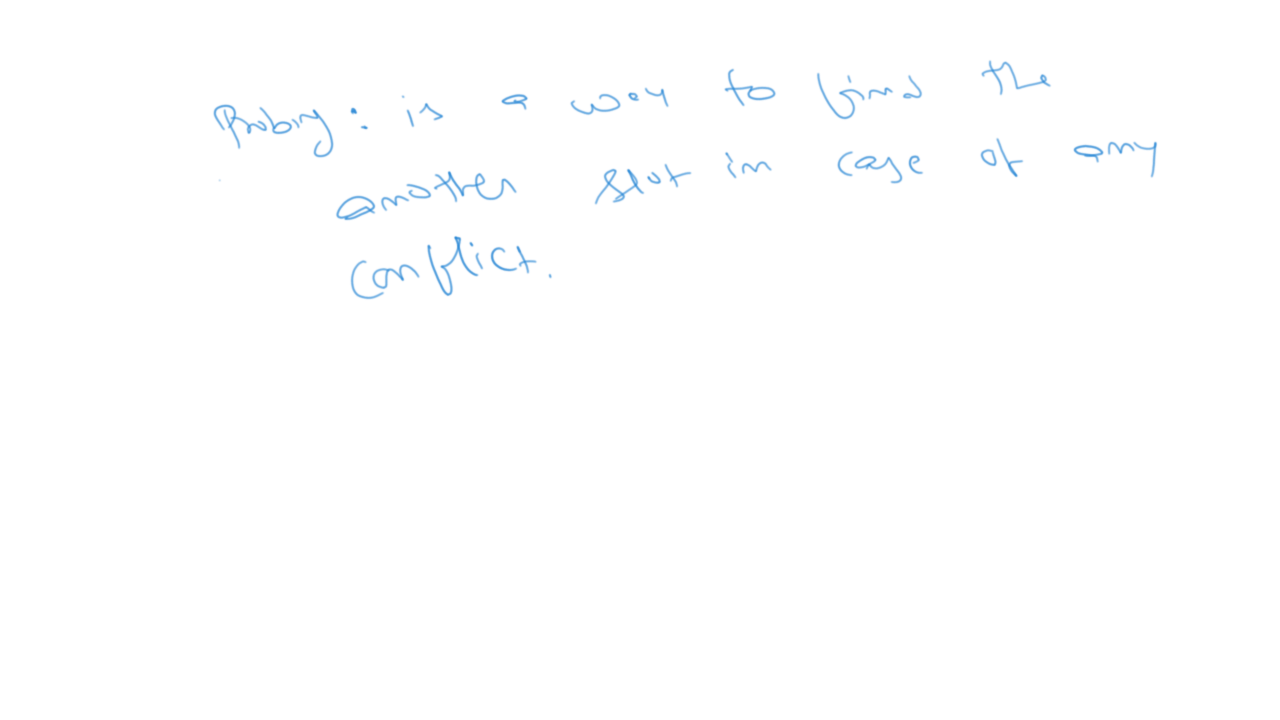 Probing: is a way to find the
another slot in case of any
conflict.